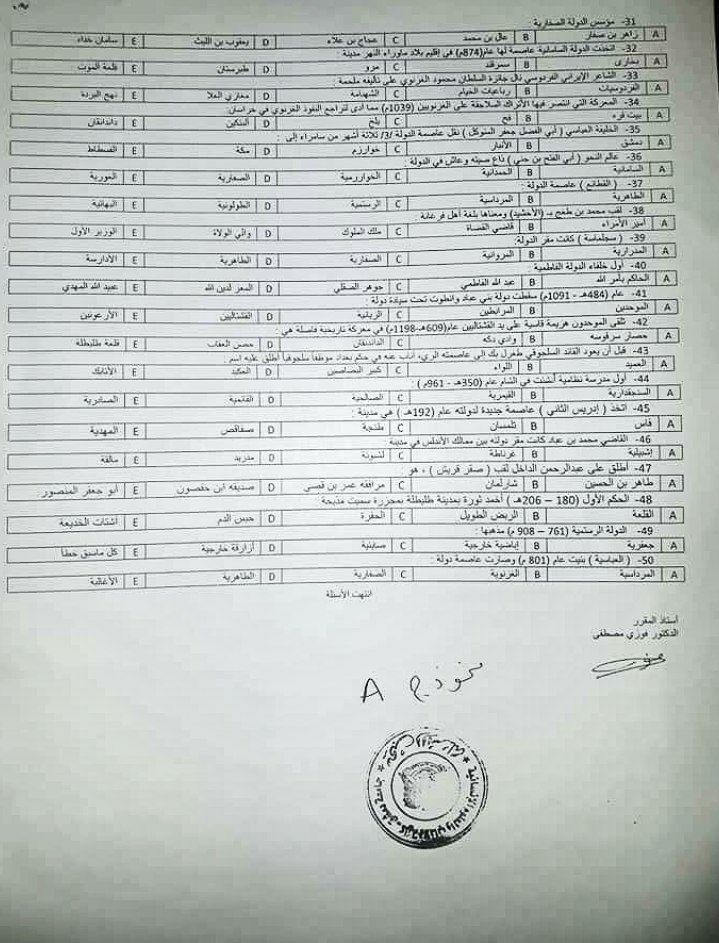 31- مؤسس الدولة الصفارية :
A زاهر بن صفار B عال بن محمد C عجاج بن علاء D يعقوب بن الليث E سامان خداه
32- اتخذت الدولة السامانية عاصمة لها عام(874م) في إقليم بلاد ماوراء النهر مدينة :
A بخارى B سمرقند C مرو D طبرستان E قلعة الموت
33- الشاعر الإيراني الفردوسي نال جائزة السلطان محمود الغزنوي على تأليفه ملحمة :
A الفردوسيات B رباعيات الخيام C الشهنامة D مغازي العلا E نهج البردة
34- المعركة التي انتصر فيها الأتراك السلاجقة على الغزنويين (1039م) مما أدى لتراجع النفوذ الغزنوي في خراسان:
A بيت فره B فخ C بلخ D ألبتكين E داندانقان
35- الخليفة العباسي ( أبي الفضل جعفر المتوكل ) نقل عاصمة الدولة /3/ ثلاثة أشهر من سامراء إلى :
A دمشق B الأنبار C خوارزم D مكة E الفسطاط
36- عالم النحو ( أبي الفتح بن جني ) ذاع صيته وعاش في الدولة :
A السامانية B الحمدانية C الخوارزمية D الصفارية E الغورية
37- ( القطائع ) عاصمة الدولة :
A الطاهرية B المرداسية C الرستمية D الطولونية E البهائية
38- لقب محمد بن طغج بـ (الأخشيد) ومعناها بلغة أهل فرغانة :
A أمير الأمراء B قاضي القضاة C ملك الملوك D والي الولاة E الوزير الأول
39- ( سجلماسة ) كانت مقر الدولة:
A المدرارية B المروانية C الصفارية D الطاهرية E الأدارسة
40- أول خلفاء الدولة الفاطمية :
A الحاكم بأمر الله B عبد الله الفاطمي C جوهر الصقلي D المعز لدين الله E عبيد الله المهدي
41- عام (484هـ - 1091م) سقطت دولة بني عباد وانطوت تحت سيادة دولة :
A الموحدين B المرابطين C الزيانية D القشتاليين E الأرغونين
42- تلقى الموحدون هزيمة قاسية على يد القشتاليين عام(609هـ-1198م) في معركة تاريخية فاصلة هي :
A حصار سرقوسه B وادي دكه C الداندنقان D حصن العقاب E قلعة طليطلة
43- قبل أن يعود القائد السلجوقي طغرل بك إلى عاصمته الري، أناب عنه في حكم بغداد موظفاً سلجوقياً أطلق عليه اسم :
A العميد B اللواء C D العكيد E الأتابك
44- أول مدرسة نظامية أنشئت في الشام عام (350هـ - 961م ) :
A السنجقدارية B القيمرية C الصالحية D E الصادرية
45- اتخذ ( إدريس الثاني ) عاصمة جديدة لدولته عام (192هـ ) هي مدينة :
A فاس B تلمسان C طنجة D صفاقص E المهدية
46- القاضي محمد بن عباد كانت مقر دولته بين ممالك الأندلس في مدينة
A إشبيلية B غرناطة C لشبونة D مدريد E مالقة
47- أطلق على عبدالرحمن الداخل لقب ( صقر قريش ) ، هو :
A طاهر بن الحسين B شارلمان C مرافقه عمر بن قصي D صديقه ابن حفصون E أبو جعفر المنصور
48- الحكم الأول (180 – 206هـ ) أخمد ثورة بمدينة طليطلة بمجزرة سميت مذبحة
A القلعة B الربض الطويل C الحفرة D حبس الدم E أشتات الخديعة
49- الدولة الرستمية (761 – 908 م) مذهبها :
A جعفرية B إباضية خارجية C D أزارقة خارجية E كل ماسبق خطأ
50- ( العباسية ) بنيت عام (801 م) وصارت عاصمة دولة :
A المرداسية B الغزنوية C الصفارية D الطاهرية E الأغالبة
انتهت الأسئلة
أستاذ المقرر
الدكتور فوزي مصطفى
نموذج A